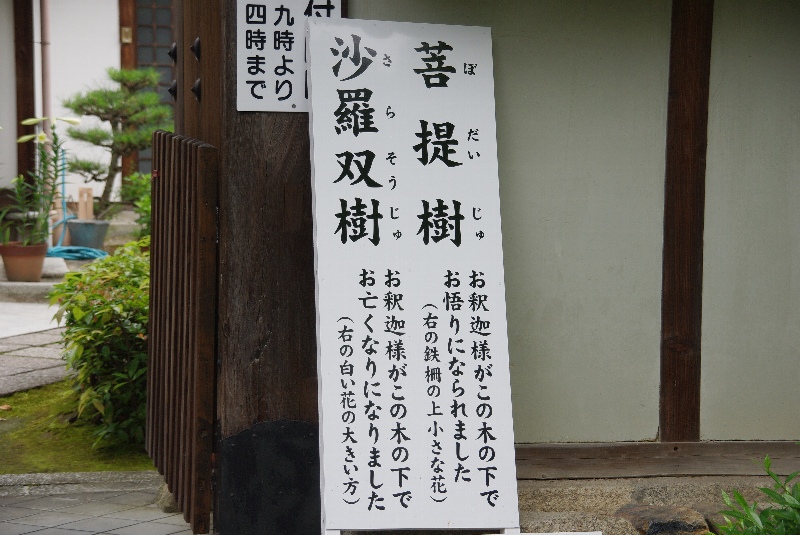 菩提樹
ぼだいじゅ
お釈迦様がこの木の下で
お悟りになられました
(右の鉄柵の上小さな花)
沙羅双樹
さらそうじゅ
お釈迦様がこの木の下で
お亡くなりになりました
(右の白い花の大きい方)
付
九時より
四時まで